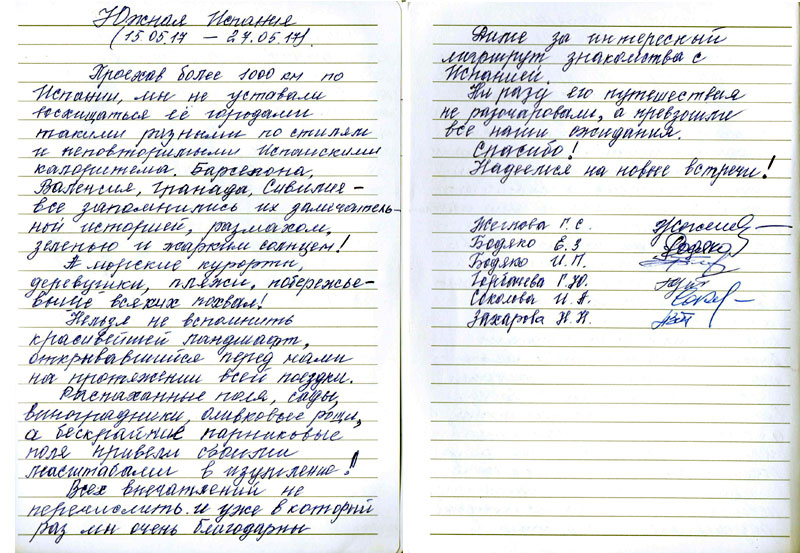 Южная Испания
(15.05.17 – 27.05.17).
Проехав более 1000 км по
Испании, мы не уставали
восхищаться её городами
такими разными по стилям
и неповторимыми Испанскими
калоритема. Барселона,
Валенсия, Гранада, Сивилия –
все запомнились их замечатель-
ной историей, размахом,
зеленью и жарким солнцем!
А морские курорты,
деревушки, пляжи, побережье –
выше всяких похвал!
Нельзя не вспомнить
красивейшей ландшафт,
открывавшийся перед нами
на протяжении всей поездки.
Распаханные поля, сады,
виноградники, оливковые рощи,
а бескрайние парниковые
поля привели своими
масштабами в изумление!
Всех впечатлений не
перечислить и уже в который
раз мы очень благодарны
Диме за интересный
маршрут знакомства с
Испанией.
Ни разу его путешествия
не разочаровали, а превзошли
все наши ожидания.
Спасибо!
Надеемся на новые встречи!
Жеглова Г.С.
Бодяко Е.З
Бодяко И.П.
Горбачева Г.Ю.
Соколова И.А.
Захарова Н.Н.